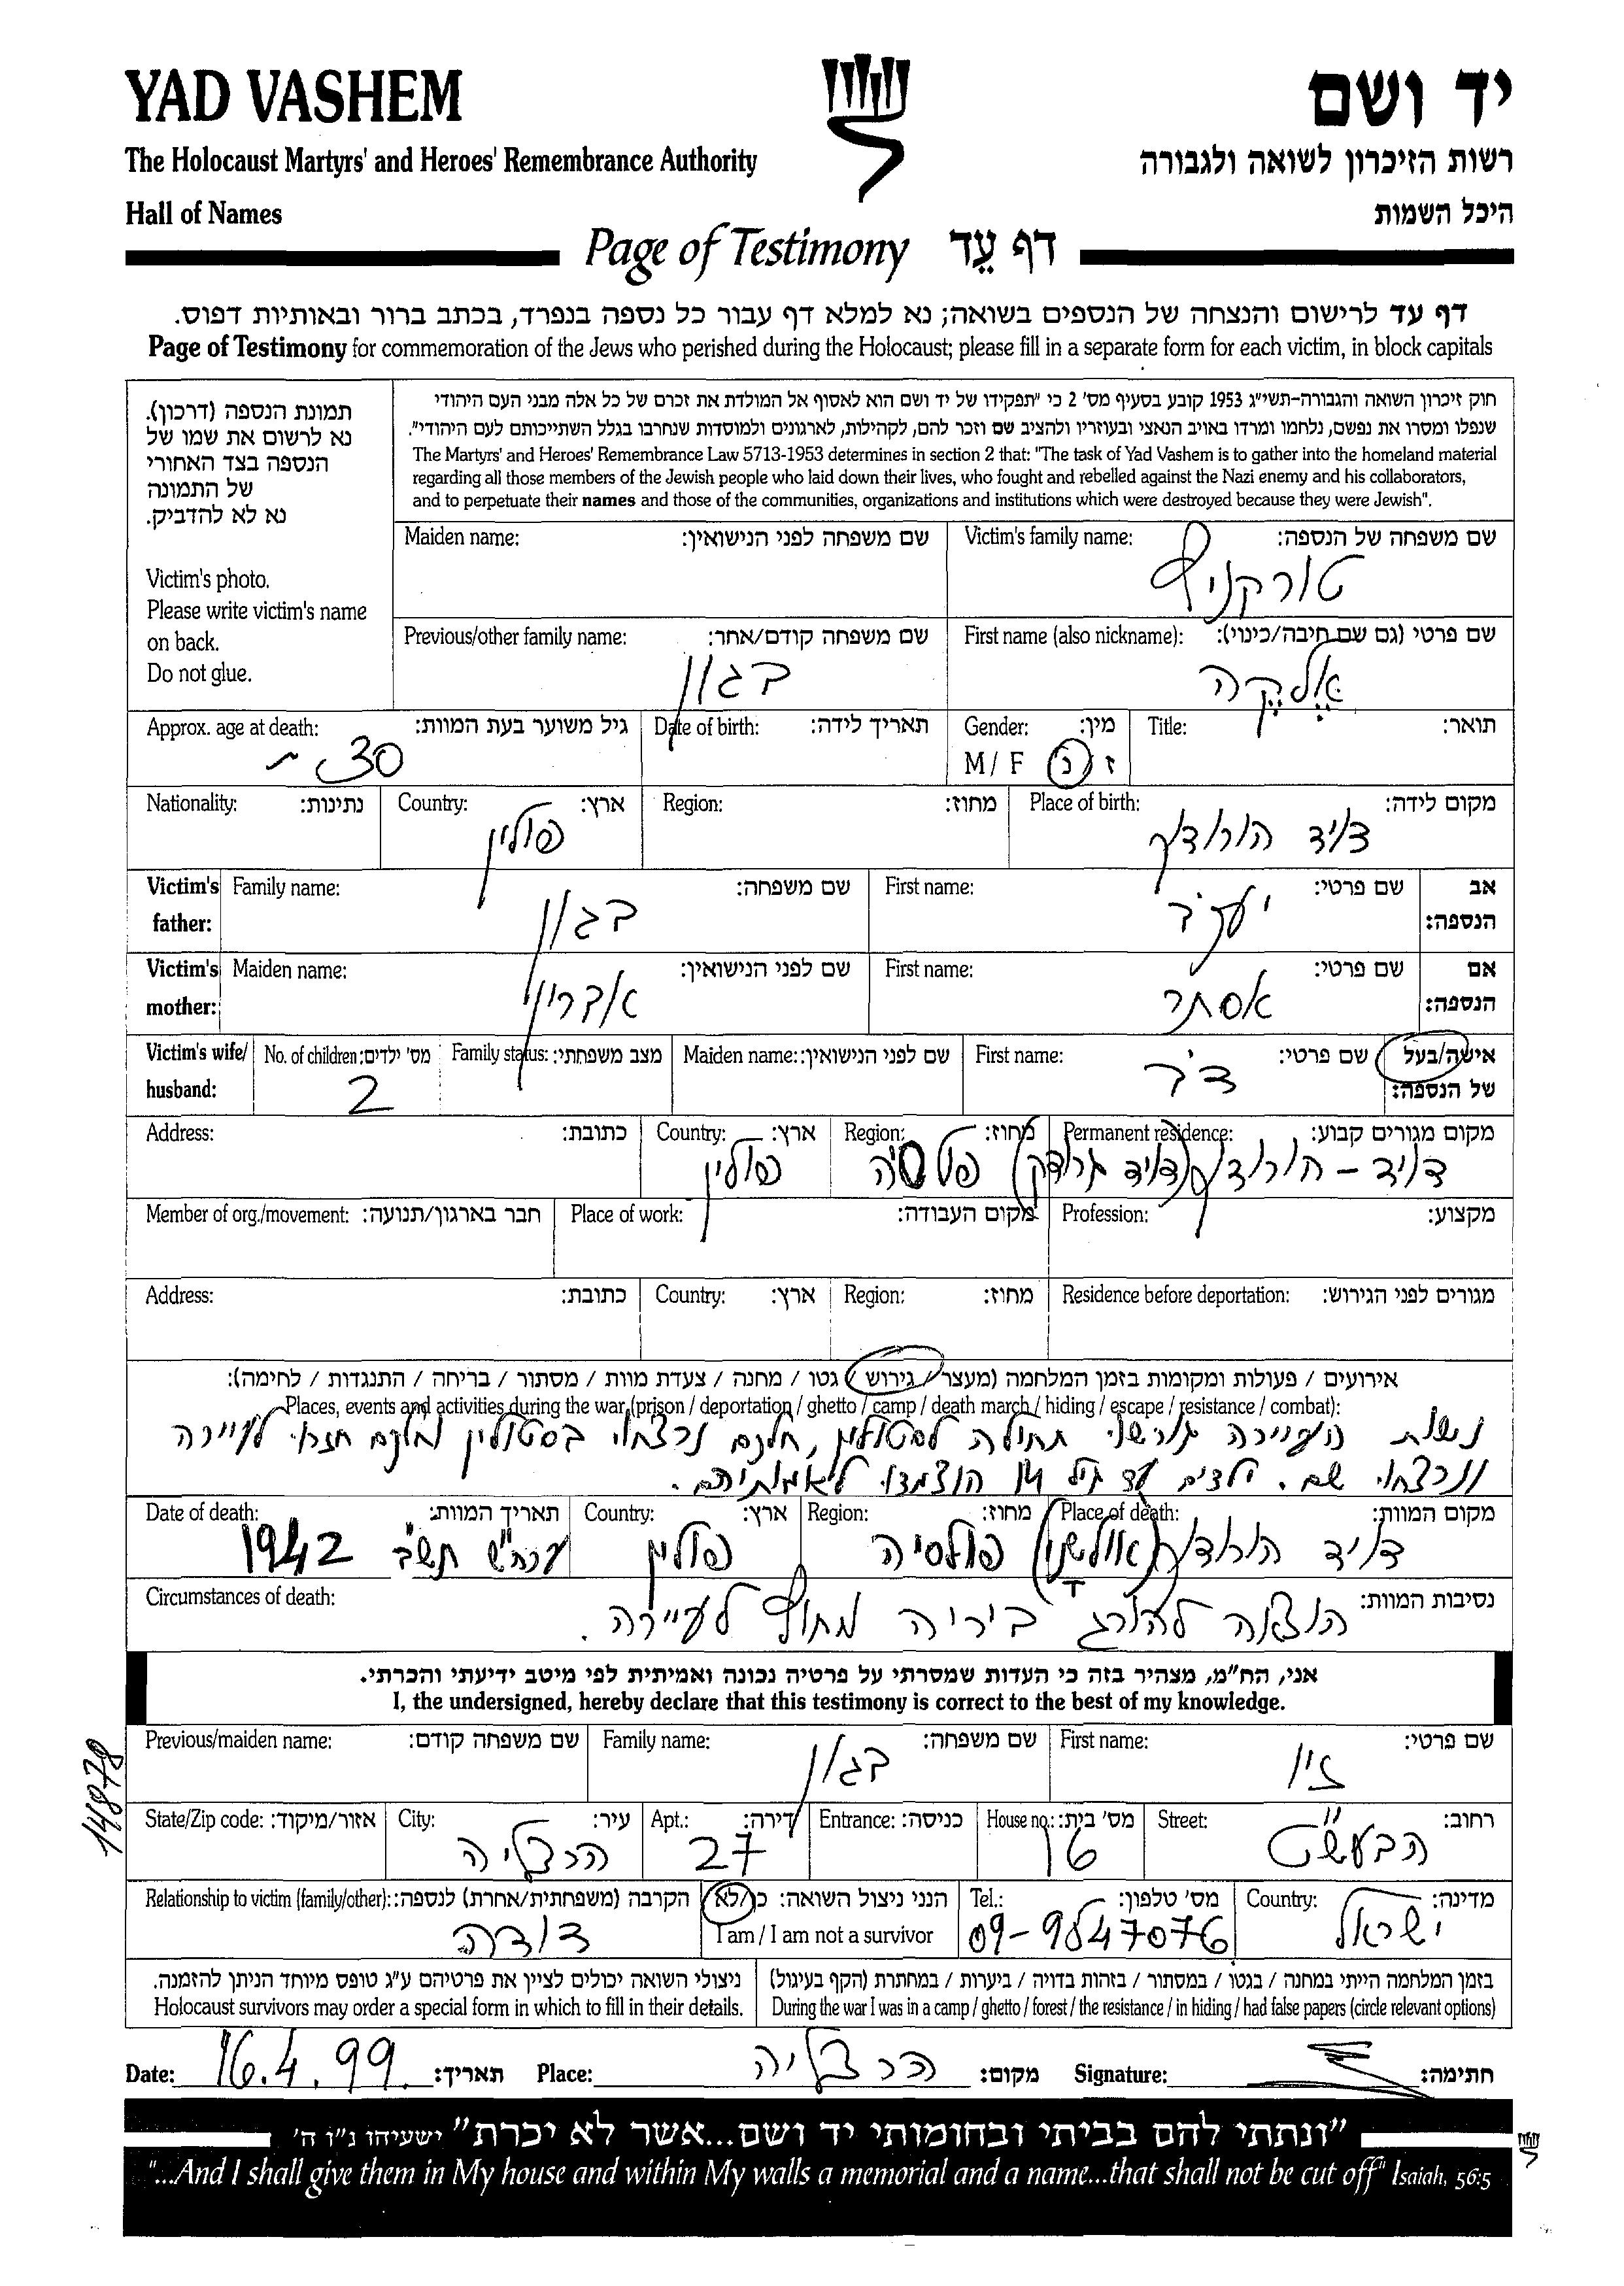 YAD VASHEM
יד ושם
The Holocaust Martyrs' and Heroes' Remembrance Authority
רשות הזיכרון לשואה ולגבורה
Hall of Names
היכל השמות
Page of Testimony דף עֵד
דף עד לרישום והנצחה של הנספים בשואה; נא למלא דף עבור כל נספה בנפרד, בכתב ברור ובאותיות דפוס.
Page of Testimony for commemoration of the Jews who perished during the Holocaust; please fill in a separate form for each victim, in block capitals
תמונת הנספה (דרכון).
נא לרשום את שמו של
הנספה בצד האחורי
של התמונה
נא לא להדביק.
Victim's photo.
Please write victim's name
on back.
Do not glue.
חוק זיכרון השואה והגבורה-תשי"ג 1953 קובע בסעיף מס' 2 כי "תפקידו של יד ושם הוא לאסוף אל המולדת את זכרם של כל אלה מבני העם היהודי
שנפלו ומסרו את נפשם, נלחמו ומרדו באויב הנאצי ובעוזריו ולהציב שם וזכר להם, לקהילות, לארגונים ולמוסדות שנחרבו בגלל השתייכותם לעם היהודי".
The Martyrs' and Heroes' Remembrance Law 5713-1953 determines in section 2 that: "The task of Yad Vashem is to gather into the homeland material
regarding all those members of the Jewish people who laid down their lives, who fought and rebelled against the Nazi enemy and his collaborators,
and to perpetuate their names and those of the communities, organizations and institutions which were destroyed because they were Jewish".
שם משפחה של הנספה: Victim's family name: שם משפחה לפני הנישואין: Maiden name:
טורקניץ
שם פרטי (גם שם חיבה/כינוי): First name (also nickname): שם משפחה קודם/אחר: Previous/other family name:
אלקה בגון
תואר: Title: מין: Gender: תאריך לידה: Date of birth: גיל משוער בעת המוות: Approx. age at death:
ז / נ M / F 30 ~
מקום לידה: Place of birth: מחוז: Region: ארץ: Country: נתינות: Nationality:
דויד הורודוק פולין
אב הנספה: שם פרטי: First name: שם משפחה: Family name: Victim's father:
יעקב בגון
אם הנספה: שם פרטי: First name: שם לפני הנישואין: Maiden name: Victim's mother:
אסתר
אישה/בעל של הנספה: שם פרטי: First name: שם לפני הנישואין: Maiden name: מצב משפחתי: Family status: מס' ילדים: No. of children: Victim's wife/ husband:
דב 2
מקום מגורים קבוע: Permanent residence: מחוז: Region: ארץ: Country: כתובת: Address:
דויד-הורודוק (דויד גרודק) פולסיה פולין
מקצוע: Profession: מקום העבודה: Place of work: חבר בארגון/תנועה: Member of org./movement:
מגורים לפני הגירוש: Residence before deportation: מחוז: Region: ארץ: Country: כתובת: Address:
אירועים / פעולות ומקומות בזמן המלחמה (מעצר / גירוש / גטו / מחנה / צעדת מוות / מסתור / בריחה / התנגדות / לחימה):
Places, events and activities during the war (prison / deportation / ghetto / camp / death march / hiding / escape / resistance / combat):
נשות העיירה גורשו תחילה לסטולין, חלקם נרצחו בסטולין וחלקם חזרו לעיירה
ונרצחו שם. ילדים עד גיל 14 הוצמדו לאמותיהם.
מקום המוות: Place of death: מחוז: Region: ארץ: Country: תאריך המוות: Date of death:
דויד הורודוק פולסיה פולין ערה"ש תש"ב 1942
נסיבות המוות: Circumstances of death:
הוצאה להורג ביריה מחוץ לעיירה.
אני, הח"מ, מצהיר בזה כי העדות שמסרתי על פרטיה נכונה ואמיתית לפי מיטב ידיעתי והכרתי.
I, the undersigned, hereby declare that this testimony is correct to the best of my knowledge.
שם פרטי: First name: שם משפחה: Family name: שם משפחה קודם: Previous/maiden name:
זיו בגון
14878
רחוב: Street: מס' בית: House no.: כניסה: Entrance: דירה: Apt.: עיר: City: אזור/מיקוד: State/Zip code:
הבעש"ט 16 27 הרצליה
מדינה: Country: מס' טלפון: Tel.: הנני ניצול השואה: כן/לא I am / I am not a survivor הקרבה (משפחתית/אחרת) לנספה: Relationship to victim (family/other):
ישראל 09-9547076 דודה
בזמן המלחמה הייתי במחנה / בגטו / במסתור / בזהות בדויה / ביערות / במחתרת (הקף בעיגול)
During the war I was in a camp / ghetto / forest / the resistance / in hiding / had false papers (circle relevant options)
ניצולי השואה יכולים לציין את פרטיהם ע"ג טופס מיוחד הניתן להזמנה.
Holocaust survivors may order a special form in which to fill in their details.
חתימה: Signature: מקום: הרצליה Place: תאריך: 16.4.99 Date:
"ונתתי להם בביתי ובחומותי יד ושם...אשר לא יכרת" ישעיהו נ"ו ה'
"...And I shall give them in My house and within My walls a memorial and a name...that shall not be cut off" Isaiah, 56:5